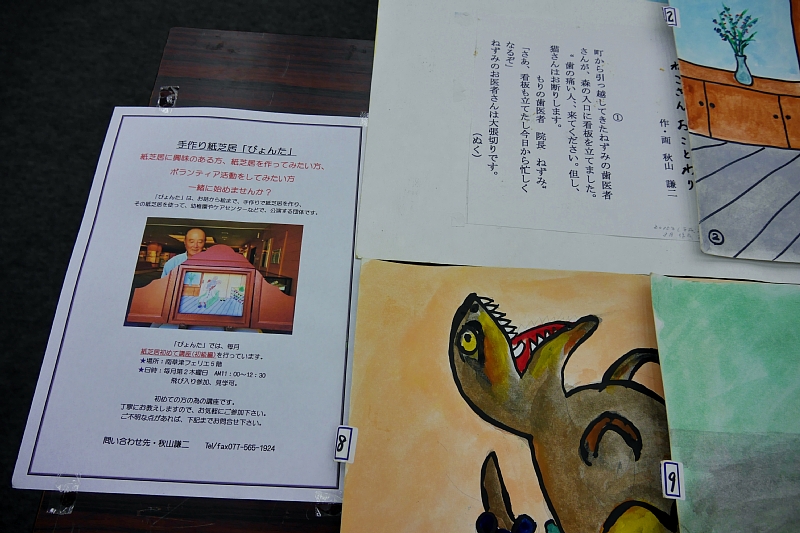 手作り紙芝居「ぴょんた」
紙芝居に興味のある方、紙芝居を作ってみたい方、
ボランティア活動をしてみたい方
一緒に始めませんか？
「ぴょんた」は、お話から絵まで、手作りで紙芝居を作り、
その紙芝居を使って、幼稚園やケアセンターなどで、公演する団体です。
「ぴょんた」では、毎月
紙芝居初めて講座(初級編)を行っています。
★場所：南草津フェリエ５階
★日時：毎月第２木曜日　AM11：00～12：30
飛び入り参加、見学可。
初めての方の為の講座です。
丁寧にお教えしますので、お気軽にご参加下さい。
ご不明な点があれば、下記までお問合せ下さい。
問い合わせ先・秋山謙二　Tel/fax077-565-1924
ねこさん おことわり
作・画　秋山　謙二
①
町から引っ越してきたねずみの歯医者
さんが、森の入口に看板を立てました。
“歯の痛い人、、来てください。但し、
猫さんはお断りします。
もりの歯医者　院長　ねずみ。
「さあ、看板も立てたし今日から忙しく
なるぞ」
ねずみのお医者さんは大張切りです。
（ぬく）
2
②
8
9